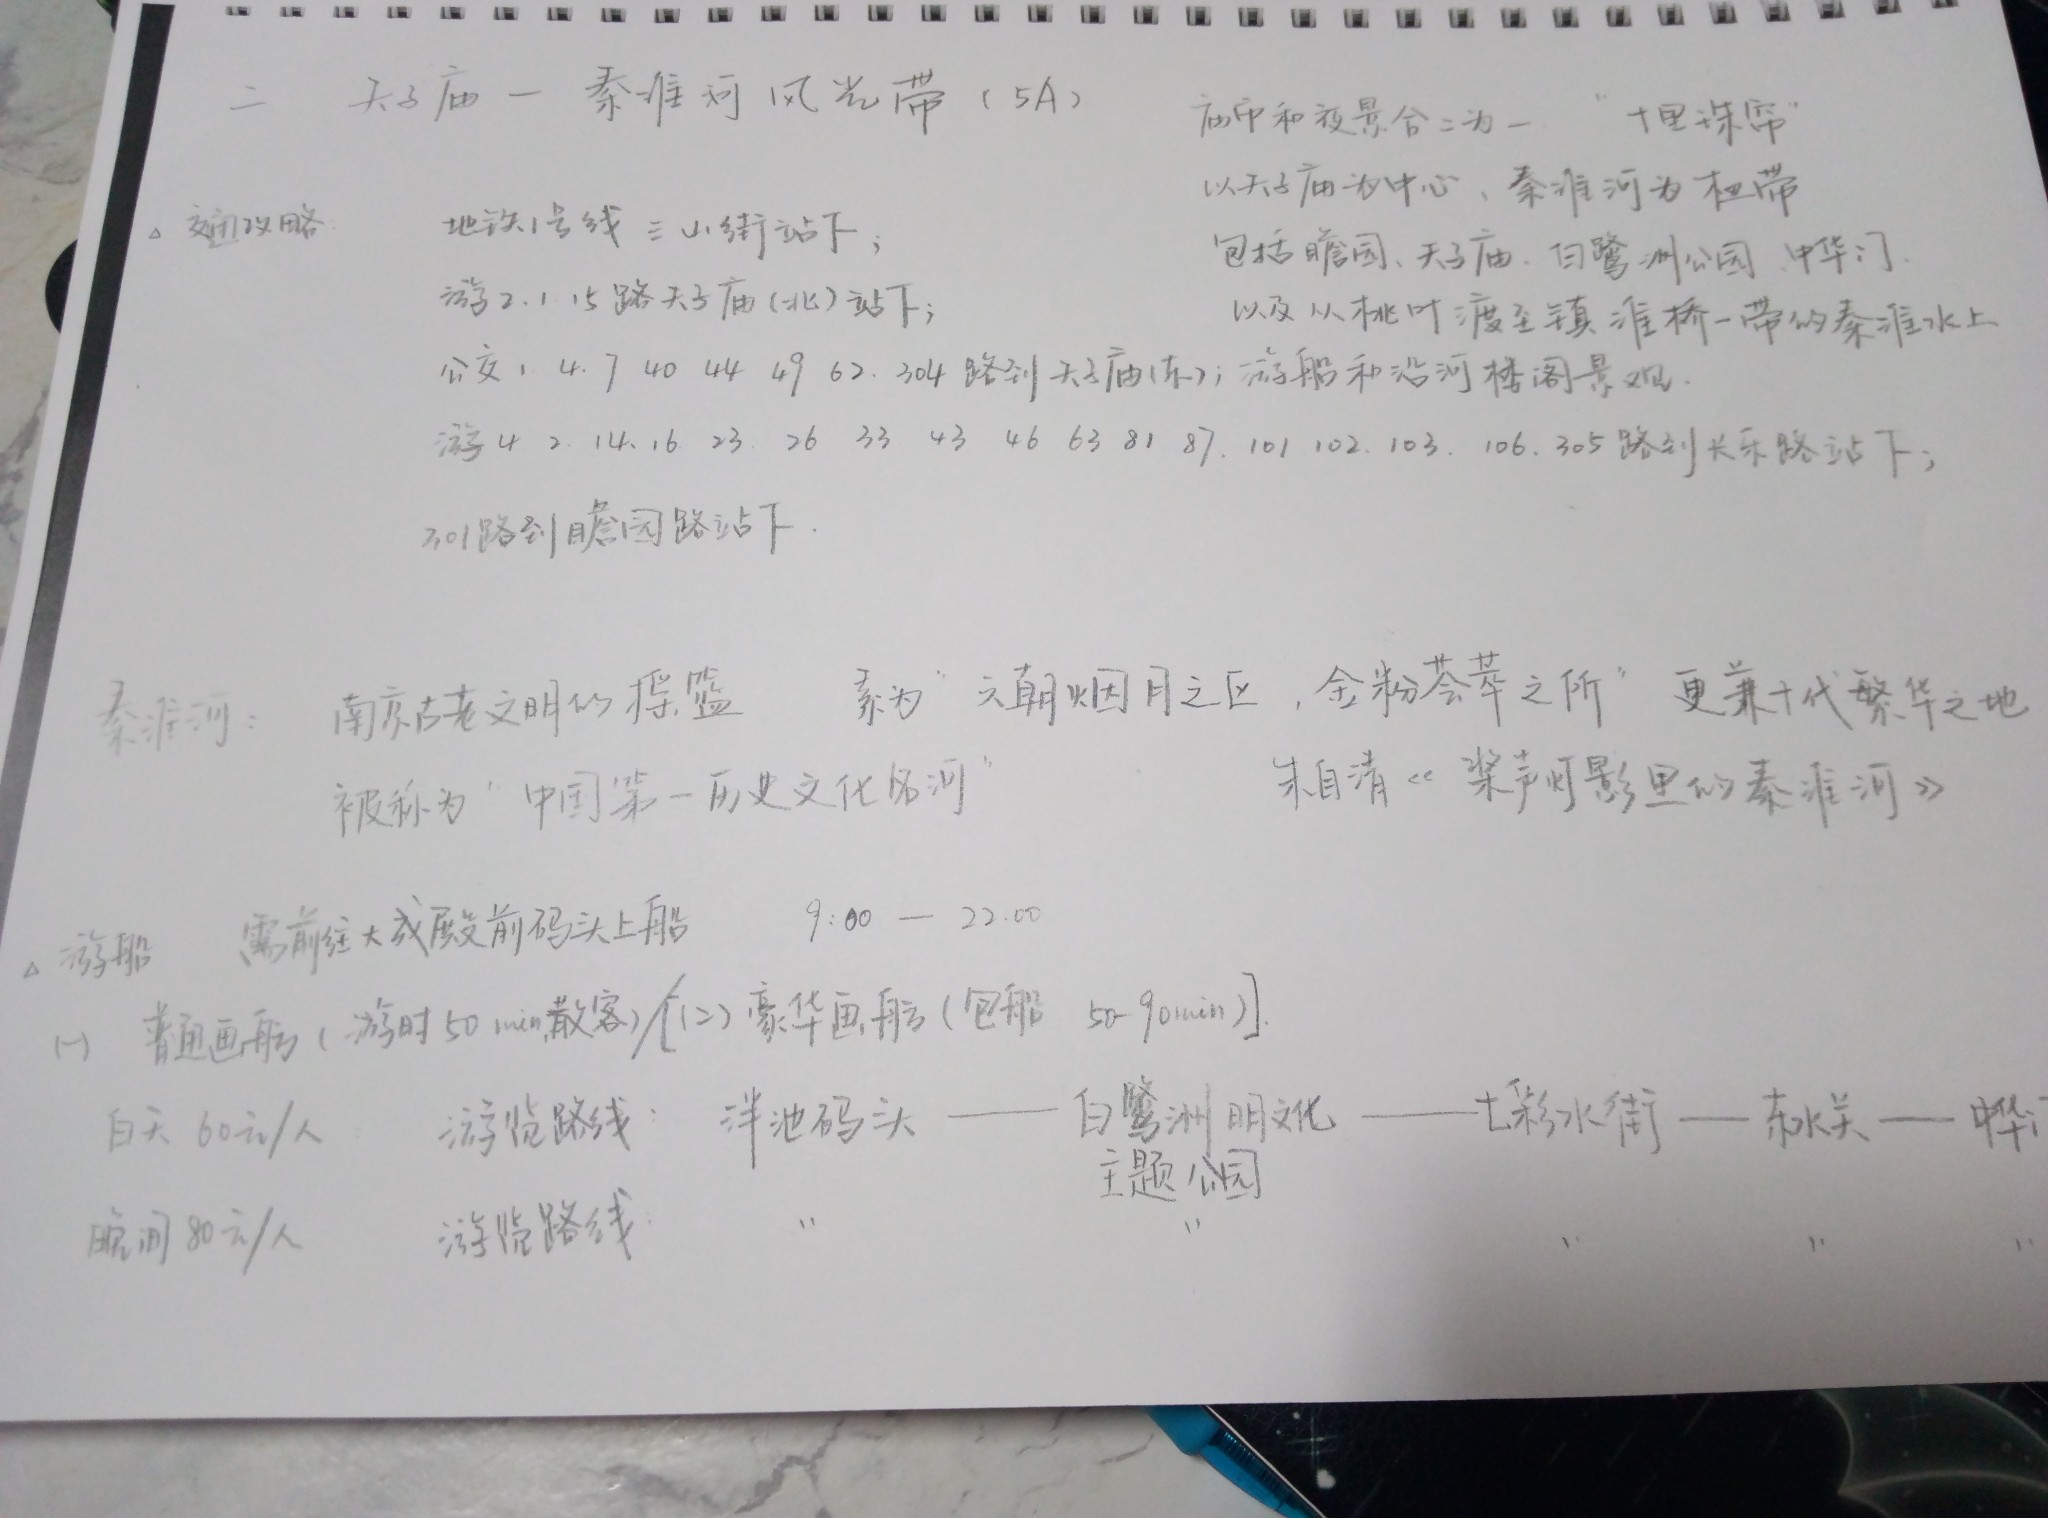 二 夫子庙一秦淮河风光带（5A）
庙市和夜景合二为一 “十里珠帘”
以夫子庙为中心、秦淮河为枢带
包括瞻园、夫子庙、白鹭洲公园、中华门.
以及从桃叶渡至镇淮桥一带的秦淮水上
游船和沿河楼阁景观.
△ 交通攻略: 地铁1号线 三山街站下；
游2.1.15路夫子庙（北）站下；
公交1 4.7 40 44 49 62.304路到夫子庙（东）；
游4 2.14.16 23. 26 33 43 46 63 81 87. 101 102.103. 106.305路到长乐路站下；
301路到瞻园路站下.
秦淮河: 南京古老文明的摇篮 素为“六朝烟月之区，金粉荟萃之所” 更兼十代繁华之地
被称为“中国第一历史文化名河” 朱自清《桨声灯影里的秦淮河》
△ 游船 需前往大成殿前码头上船 9:00 — 22.00
(一) 普通画舫（游时50min,散客）/[(二) 豪华画舫（包船 50-90min）].
白天60元/人 游览路线: 泮池码头 —— 白鹭洲明文化 —— 七彩水街 — 东水关 — 中华门
主题公园
晚间80元/人 游览路线: 〃 〃 〃 〃 〃